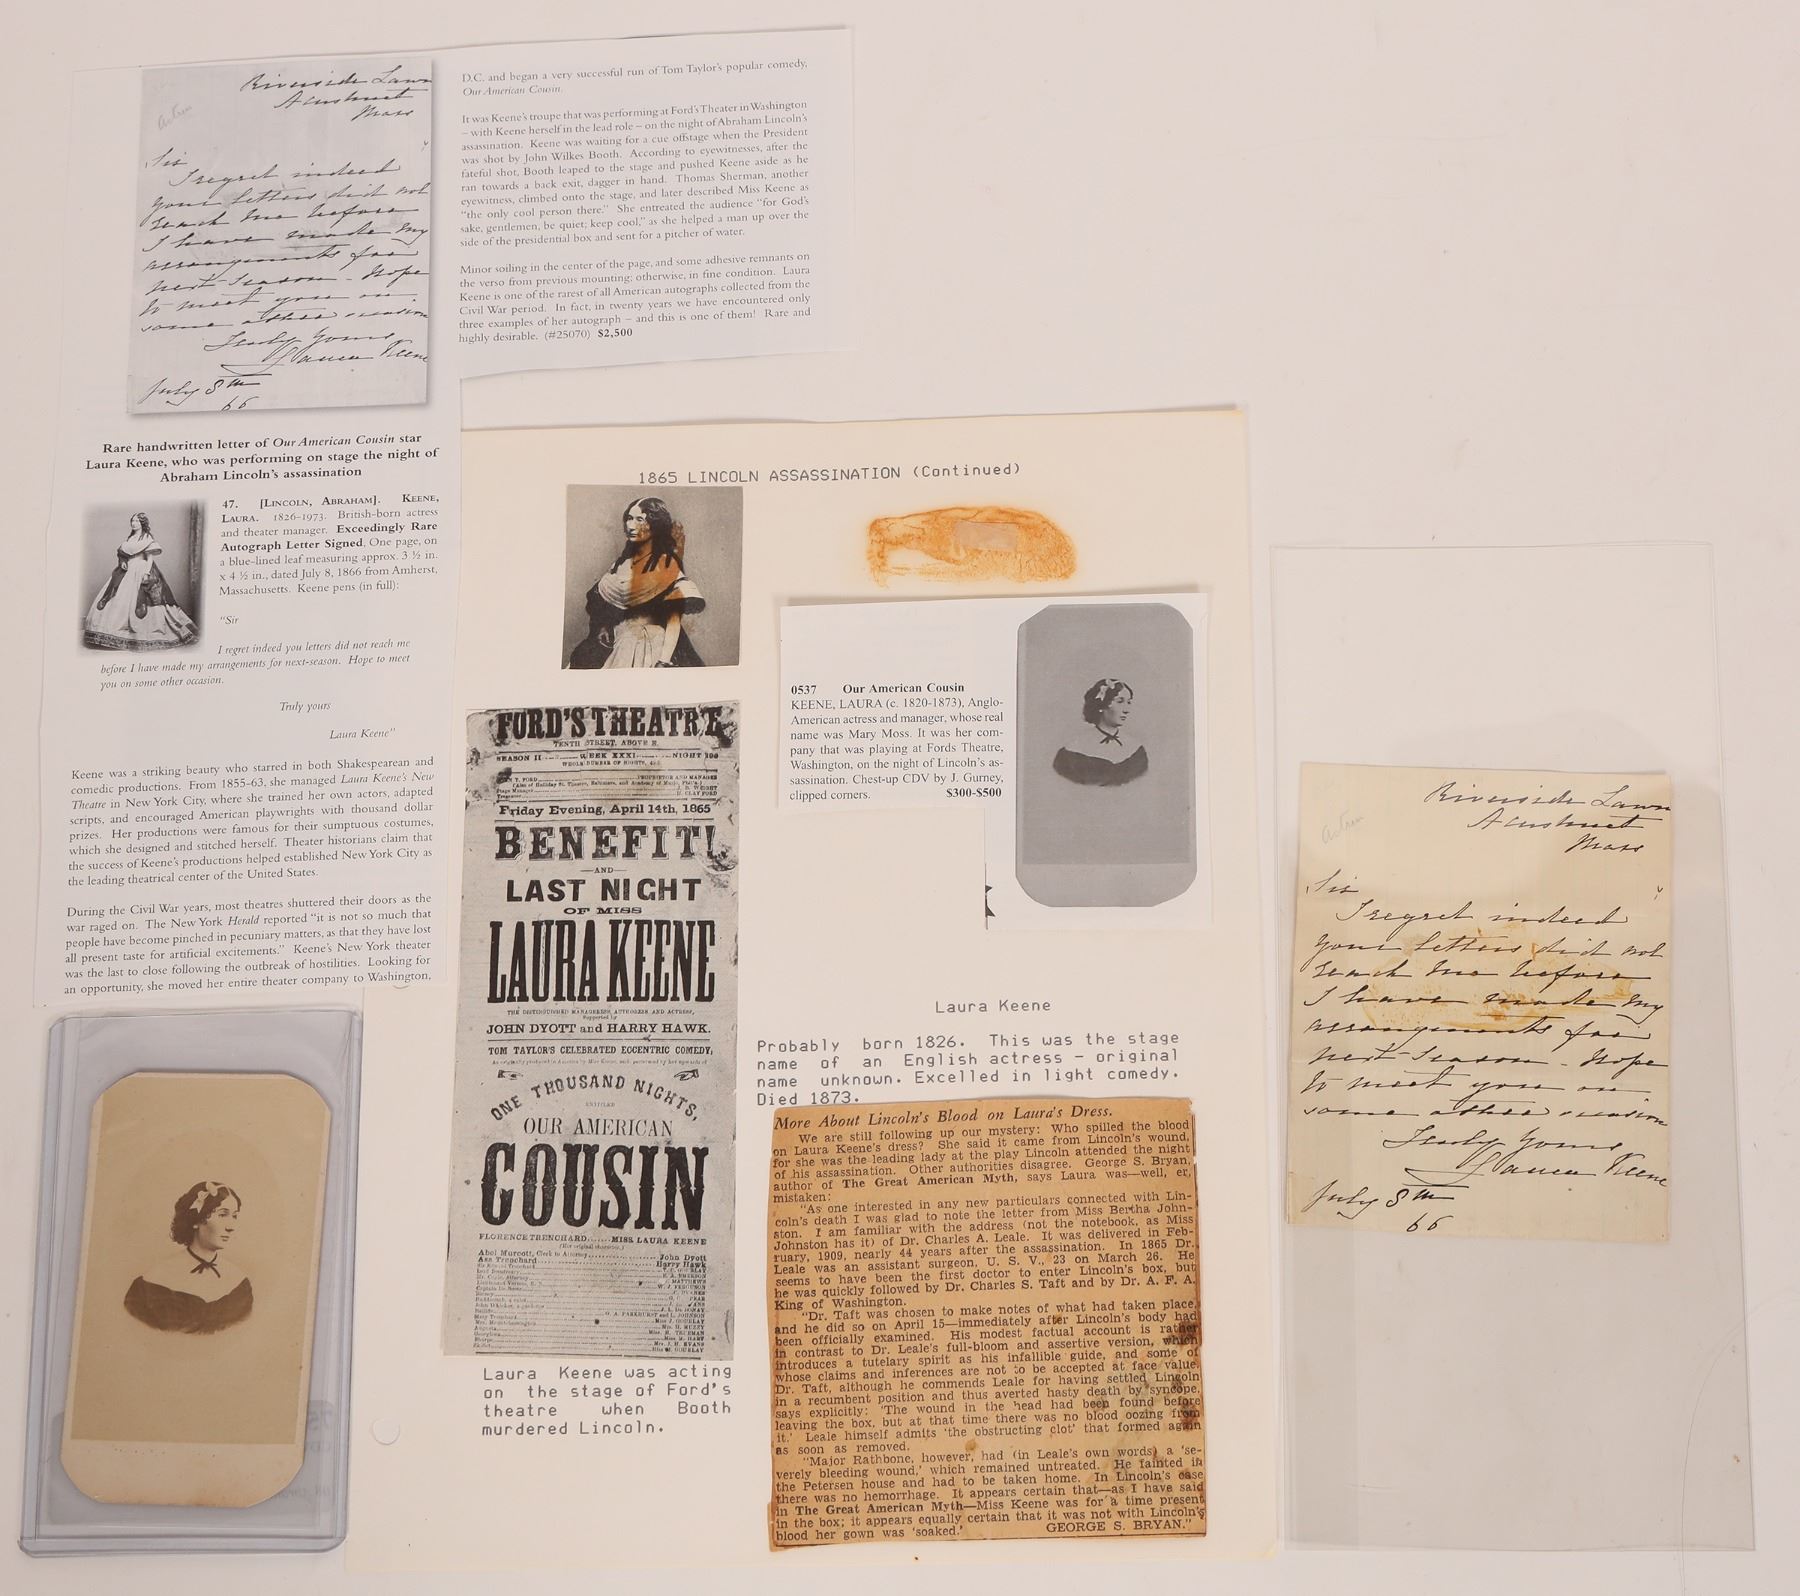 Riverside Lawn
Acushnet
Mass
Actress
Sir
I regret indeed
your letters did not
reach me before
I have made my
arrangements for
next season - Hope
to meet you on
some other occasion
Truly Yours
Laura Keene
July 8th
66
Rare handwritten letter of Our American Cousin star
Laura Keene, who was performing on stage the night of
Abraham Lincoln's assassination
47. [LINCOLN, ABRAHAM]. KEENE,
LAURA. 1826-1973. British-born actress
and theater manager. Exceedingly Rare
Autograph Letter Signed. One page, on
a blue-lined leaf measuring approx. 3 ½ in.
x 4 ½ in., dated July 8, 1866 from Amherst,
Massachusetts. Keene pens (in full):
"Sir
I regret indeed you letters did not reach me
before I have made my arrangements for next-season. Hope to meet
you on some other occasion.
Truly yours
Laura Keene"
Keene was a striking beauty who starred in both Shakespearean and
comedic productions. From 1855-63, she managed Laura Keene's New
Theatre in New York City, where she trained her own actors, adapted
scripts, and encouraged American playwrights with thousand dollar
prizes. Her productions were famous for their sumptuous costumes,
which she designed and stitched herself. Theater historians claim that
the success of Keene's productions helped established New York City as
the leading theatrical center of the United States.
During the Civil War years, most theatres shuttered their doors as the
war raged on. The New York Herald reported "it is not so much that
people have become pinched in pecuniary matters, as that they have lost
all present taste for artificial excitements." Keene's New York theater
was the last to close following the outbreak of hostilities. Looking for
an opportunity, she moved her entire theater company to Washington,
D.C. and began a very successful run of Tom Taylor's popular comedy,
Our American Cousin.
It was Keene's troupe that was performing at Ford's Theater in Washington
– with Keene herself in the lead role – on the night of Abraham Lincoln's
assassination. Keene was waiting for a cue offstage when the President
was shot by John Wilkes Booth. According to eyewitnesses, after the
fateful shot, Booth leaped to the stage and pushed Keene aside as he
ran towards a back exit, dagger in hand. Thomas Sherman, another
eyewitness, climbed onto the stage, and later described Miss Keene as
"the only cool person there." She entreated the audience "for God's
sake, gentlemen, be quiet; keep cool," as she helped a man up over the
side of the presidential box and sent for a pitcher of water.
Minor soiling in the center of the page, and some adhesive remnants on
the verso from previous mounting; otherwise, in fine condition. Laura
Keene is one of the rarest of all American autographs collected from the
Civil War period. In fact, in twenty years we have encountered only
three examples of her autograph – and this is one of them! Rare and
highly desirable. (#25070) $2,500
1865 LINCOLN ASSASSINATION (Continued)
0537 Our American Cousin
KEENE, LAURA (c. 1820-1873), Anglo-
American actress and manager, whose real
name was Mary Moss. It was her com-
pany that was playing at Fords Theatre,
Washington, on the night of Lincoln's as-
sassination. Chest-up CDV by J. Gurney,
clipped corners. $300-$500
FORD'S THEATRE
TENTH STREET, ABOVE E.
SEASON II WEEK XXXI NIGHT
WHOLE NUMBER OF NIGHTS, 495.
PROPRIETOR AND MANAGER
Stage Manager J. B. WRIGHT
Treasurer H. CLAY FORD
Friday Evening, April 14th, 1865
BENEFIT!
—AND—
LAST NIGHT
OF MISS
LAURA KEENE
THE DISTINGUISHED MANAGERESS, AUTHORESS AND ACTRESS,
Supported by
JOHN DYOTT and HARRY HAWK.
TOM TAYLOR'S CELEBRATED ECCENTRIC COMEDY,
ONE THOUSAND NIGHTS,
ENTITLED
OUR AMERICAN
COUSIN
FLORENCE TRENCHARD......MISS LAURA KEENE
(Her original character.)
Abel Murcott, Clerk to Attorney John Dyott
Asa Trenchard Harry Hawk
Laura Keene was acting
on the stage of Ford's
theatre when Booth
murdered Lincoln.
Laura Keene
Probably born 1826. This was the stage
name of an English actress - original
name unknown. Excelled in light comedy.
Died 1873.
More About Lincoln's Blood on Laura's Dress.
We are still following up our mystery: Who spilled the blood
on Laura Keene's dress? She said it came from Lincoln's wound,
for she was the leading lady at the play Lincoln attended the night
of his assassination. Other authorities disagree. George S. Bryan,
author of The Great American Myth, says Laura was—well, er,
mistaken:
"As one interested in any new particulars connected with Lin-
coln's death I was glad to note the letter from Miss Bertha John-
ston. I am familiar with the address (not the notebook, as Miss
Johnston has it) of Dr. Charles A. Leale. It was delivered in Feb-
ruary, 1909, nearly 44 years after the assassination. In 1865 Dr.
Leale was an assistant surgeon, U. S. V., 23 on March 26. He
seems to have been the first doctor to enter Lincoln's box, but
he was quickly followed by Dr. Charles S. Taft and by Dr. A. F. A.
King of Washington.
"Dr. Taft was chosen to make notes of what had taken place,
and he did so on April 15—immediately after Lincoln's body had
been officially examined. His modest factual account is rather
in contrast to Dr. Leale's full-bloom and assertive version, which
introduces a tutelary spirit as his infallible guide, and some of
whose claims and inferences are not to be accepted at face value.
Dr. Taft, although he commends Leale for having settled Lincoln
in a recumbent position and thus averted hasty death by syncope,
says explicitly: 'The wound in the head had been found before
leaving the box, but at that time there was no blood oozing from
it.' Leale himself admits 'the obstructing clot' that formed again
as soon as removed.
"Major Rathbone, however, had (in Leale's own words) a 'se-
verely bleeding wound,' which remained untreated. He fainted in
the Petersen house and had to be taken home. In Lincoln's case
there was no hemorrhage. It appears certain that—as I have said
in The Great American Myth—Miss Keene was for a time present
in the box; it appears equally certain that it was not with Lincoln's
blood her gown was 'soaked.' GEORGE S. BRYAN."
Riverside Lawn
Acushnet
Mass
Actress
Sir
I regret indeed
your letters did not
reach me before
I have made my
arrangements for
next season - Hope
to meet you on
some other occasion
Truly Yours
Laura Keene
July 8th
66